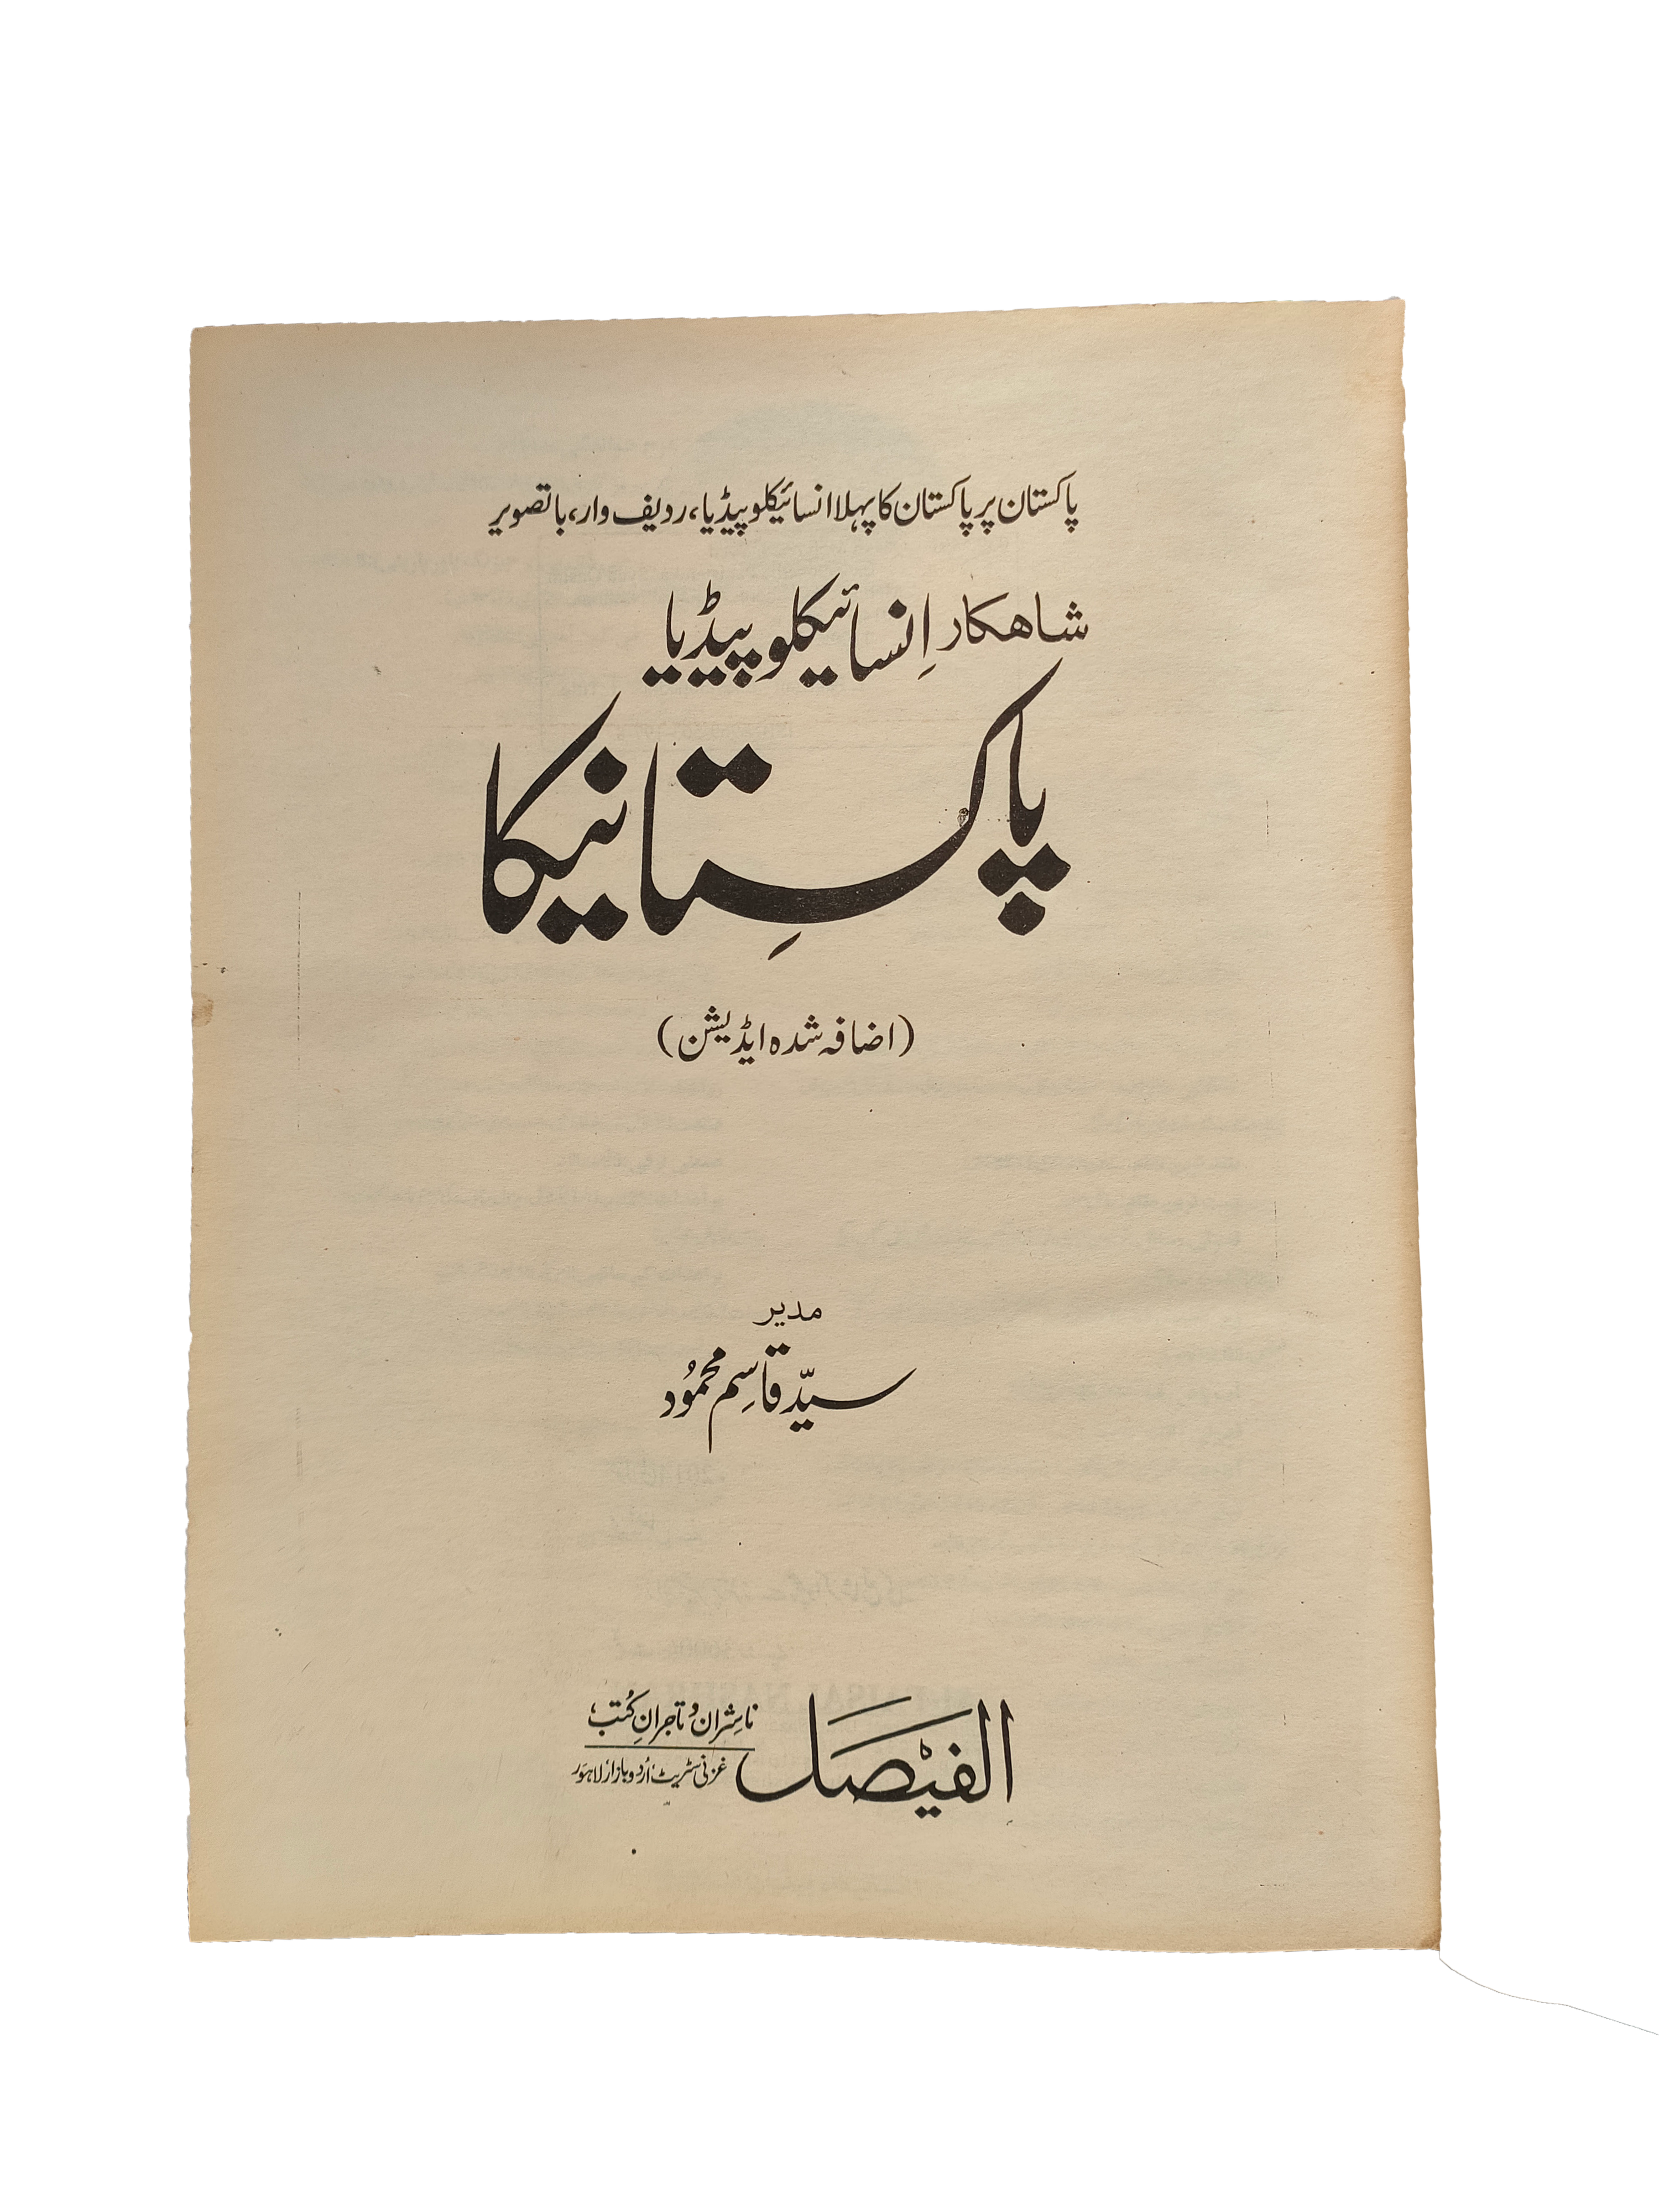 پاکستان پر پاکستان کا پہلا انسائیکلوپیڈیا، ردیف وار، باتصویر
شاھکار اِنسائیکلوپیڈیا
پاکسِتانیکا
(اضافہ شدہ ایڈیشن)
مدیر
سیّد قاسِم محمُود
الفیصل
ناشِران و تاجرانِ کُتب
غزنی سٹریٹ اُردو بازار لاہور